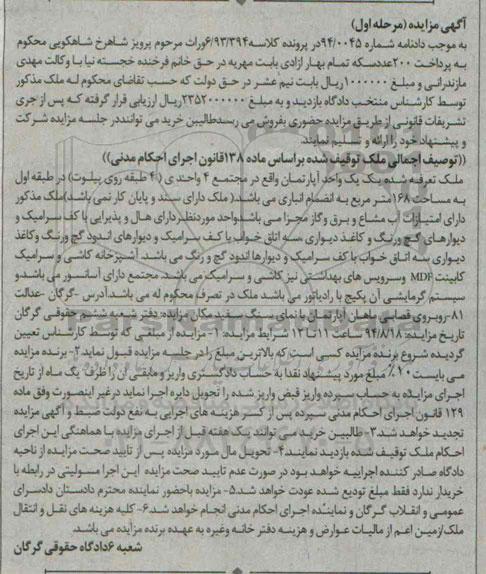 آگهی مزایده (مرحله اول)
به موجب دادنامه شماره ۹۴/۰۰۴۵در پرونده کلاسه۶/۹۳/۳۹۴وراث مرحوم پرویز شاهرخ شاهکویی محکوم
به پرداخت ۲۰۰عددسکه تمام بهار ازادی بابت مهریه در حق خانم فرخنده خجسته نیا با وکالت مهدی
مازندرانی و مبلغ ۱۰۰۰۰۰۰ریال بابت نیم عشر در حق دولت که حسب تقاضای محکوم له ملک مذکور
توسط کارشناس منتخب دادگاه بازدید و به مبلغ ۲۳۵۲۰۰۰۰۰۰ریال ارزیابی قرار گرفته که پس از جری
تشریفات قانونی از طریق مزایده حضوری بفروش می رسدطالبین خرید می توانند در جلسه مزایده شرکت
و پیشنهاد خود را ارائه و تسلیم نمایند.
((توصیف اجمالی ملک توقیف شده براساس ماده ۱۳۸قانون اجرای احکام مدنی))
ملک تعرفه شده یک یک واحد آپارتمان واقع در مجتمع ۴ واحدی (۴ طبقه روی پیلوت) در طبقه اول
به مساحت ۱۶۸متر مربع به انضمام انباری می باشد.( ملک دارای سند و پایان کار نمی باشد)ملک مذکور
دارای امتیازات آب مشاع و برق و گاز مجزا می باشدواحد موردنظر دارای هال و پذیرایی با کف سرامیک و
دیوارهای گچ ورنگ و کاغذ دیواری ،سه اتاق خواب با کف سرامیک و دیوارهای اندود گچ ورنگ وکاغذ
دیواری سه اتاق خواب با کف سرامیک و دیوارها اندود گچ و رنگ می باشد. آشپزخانه کاشی و سرامیک
کابینت MDF وسرویس های بهداشتی نیز کاشی و سرامیک می باشد. مجتمع دارای آسانسور می باشدو
سیستم گرمایشی آن پکیج با رادیاتور می باشد ملک در تصرف محکوم له می باشد.آدرس -گرگان -عدالت
۸۱-روبروی قصابی ماهان آپارتمان با نمای سنگ سفید مکان مزایده:دفتر شعبه ششم حقوقی گرگان
تاریخ مزایده: ۹۴/۸/۱۸ ساعت ۱۱تا ۱۲ شرایط مزایده: ۱- مزایده از مبلغی که توسط کارشناس تعیین
گردیده شروع برنده مزایده کسی است که بالاترین مبلغ را در جلسه مزایده قبول نماید ۲- برنده مزایده
می بایست ۱۰٪ مبلغ مورد پیشنهاد نقدا به حساب دادگستری واریز و مابقی آن را ظرف یک ماه از تاریخ
اجرای مزایده به حساب سپرده واریز قبض واریز شده را تحویل دایره اجرا نماید درغیر اینصورت وفق ماده
۱۲۹ قانون اجرای احکام مدنی سپرده پس از کسر هزینه های اجرایی به نفع دولت ضبط و آگهی مزایده
تجدید خواهد شد.۳-طالبین خرید می توانند یک هفته قبل از اجرای مزایده با هماهنگی این اجرای
احکام ملک توقیف شده بازدید نمایند.۴- تحویل مال مورد مزایده پس از تایید صحت مزایده از ناحیه
دادگاه صادر کننده اجراییه خواهد بود در صورت عدم تایید صحت مزایده این اجرا مسولیتی در رابطه با
خریدار ندارد فقط مبلغ تودیع شده عودت خواهد شد.۵- مزایده باحضور نماینده محترم دادستان دادسرای
عمومی و انقلاب گرگان و نماینده اجرای احکام مدنی انجام خواهد شد.۶- کلیه هزینه های نقل و انتقال
ملک ازمین اعم از مالیات عوارض و هزینه دفتر خانه وغیره به عهده برنده مزایده می باشد.
شعبه ۶دادگاه حقوقی گرگان